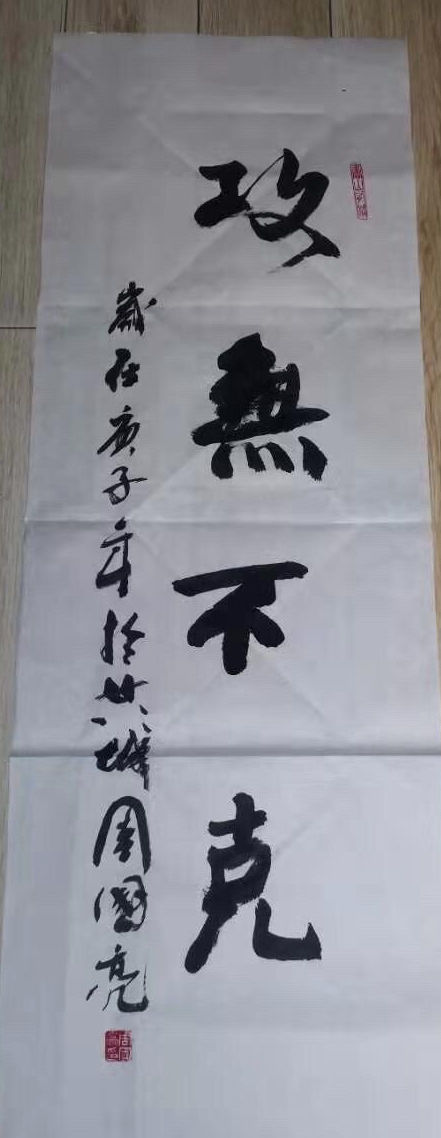 攻無不克
歲在庚子年於
周國亮